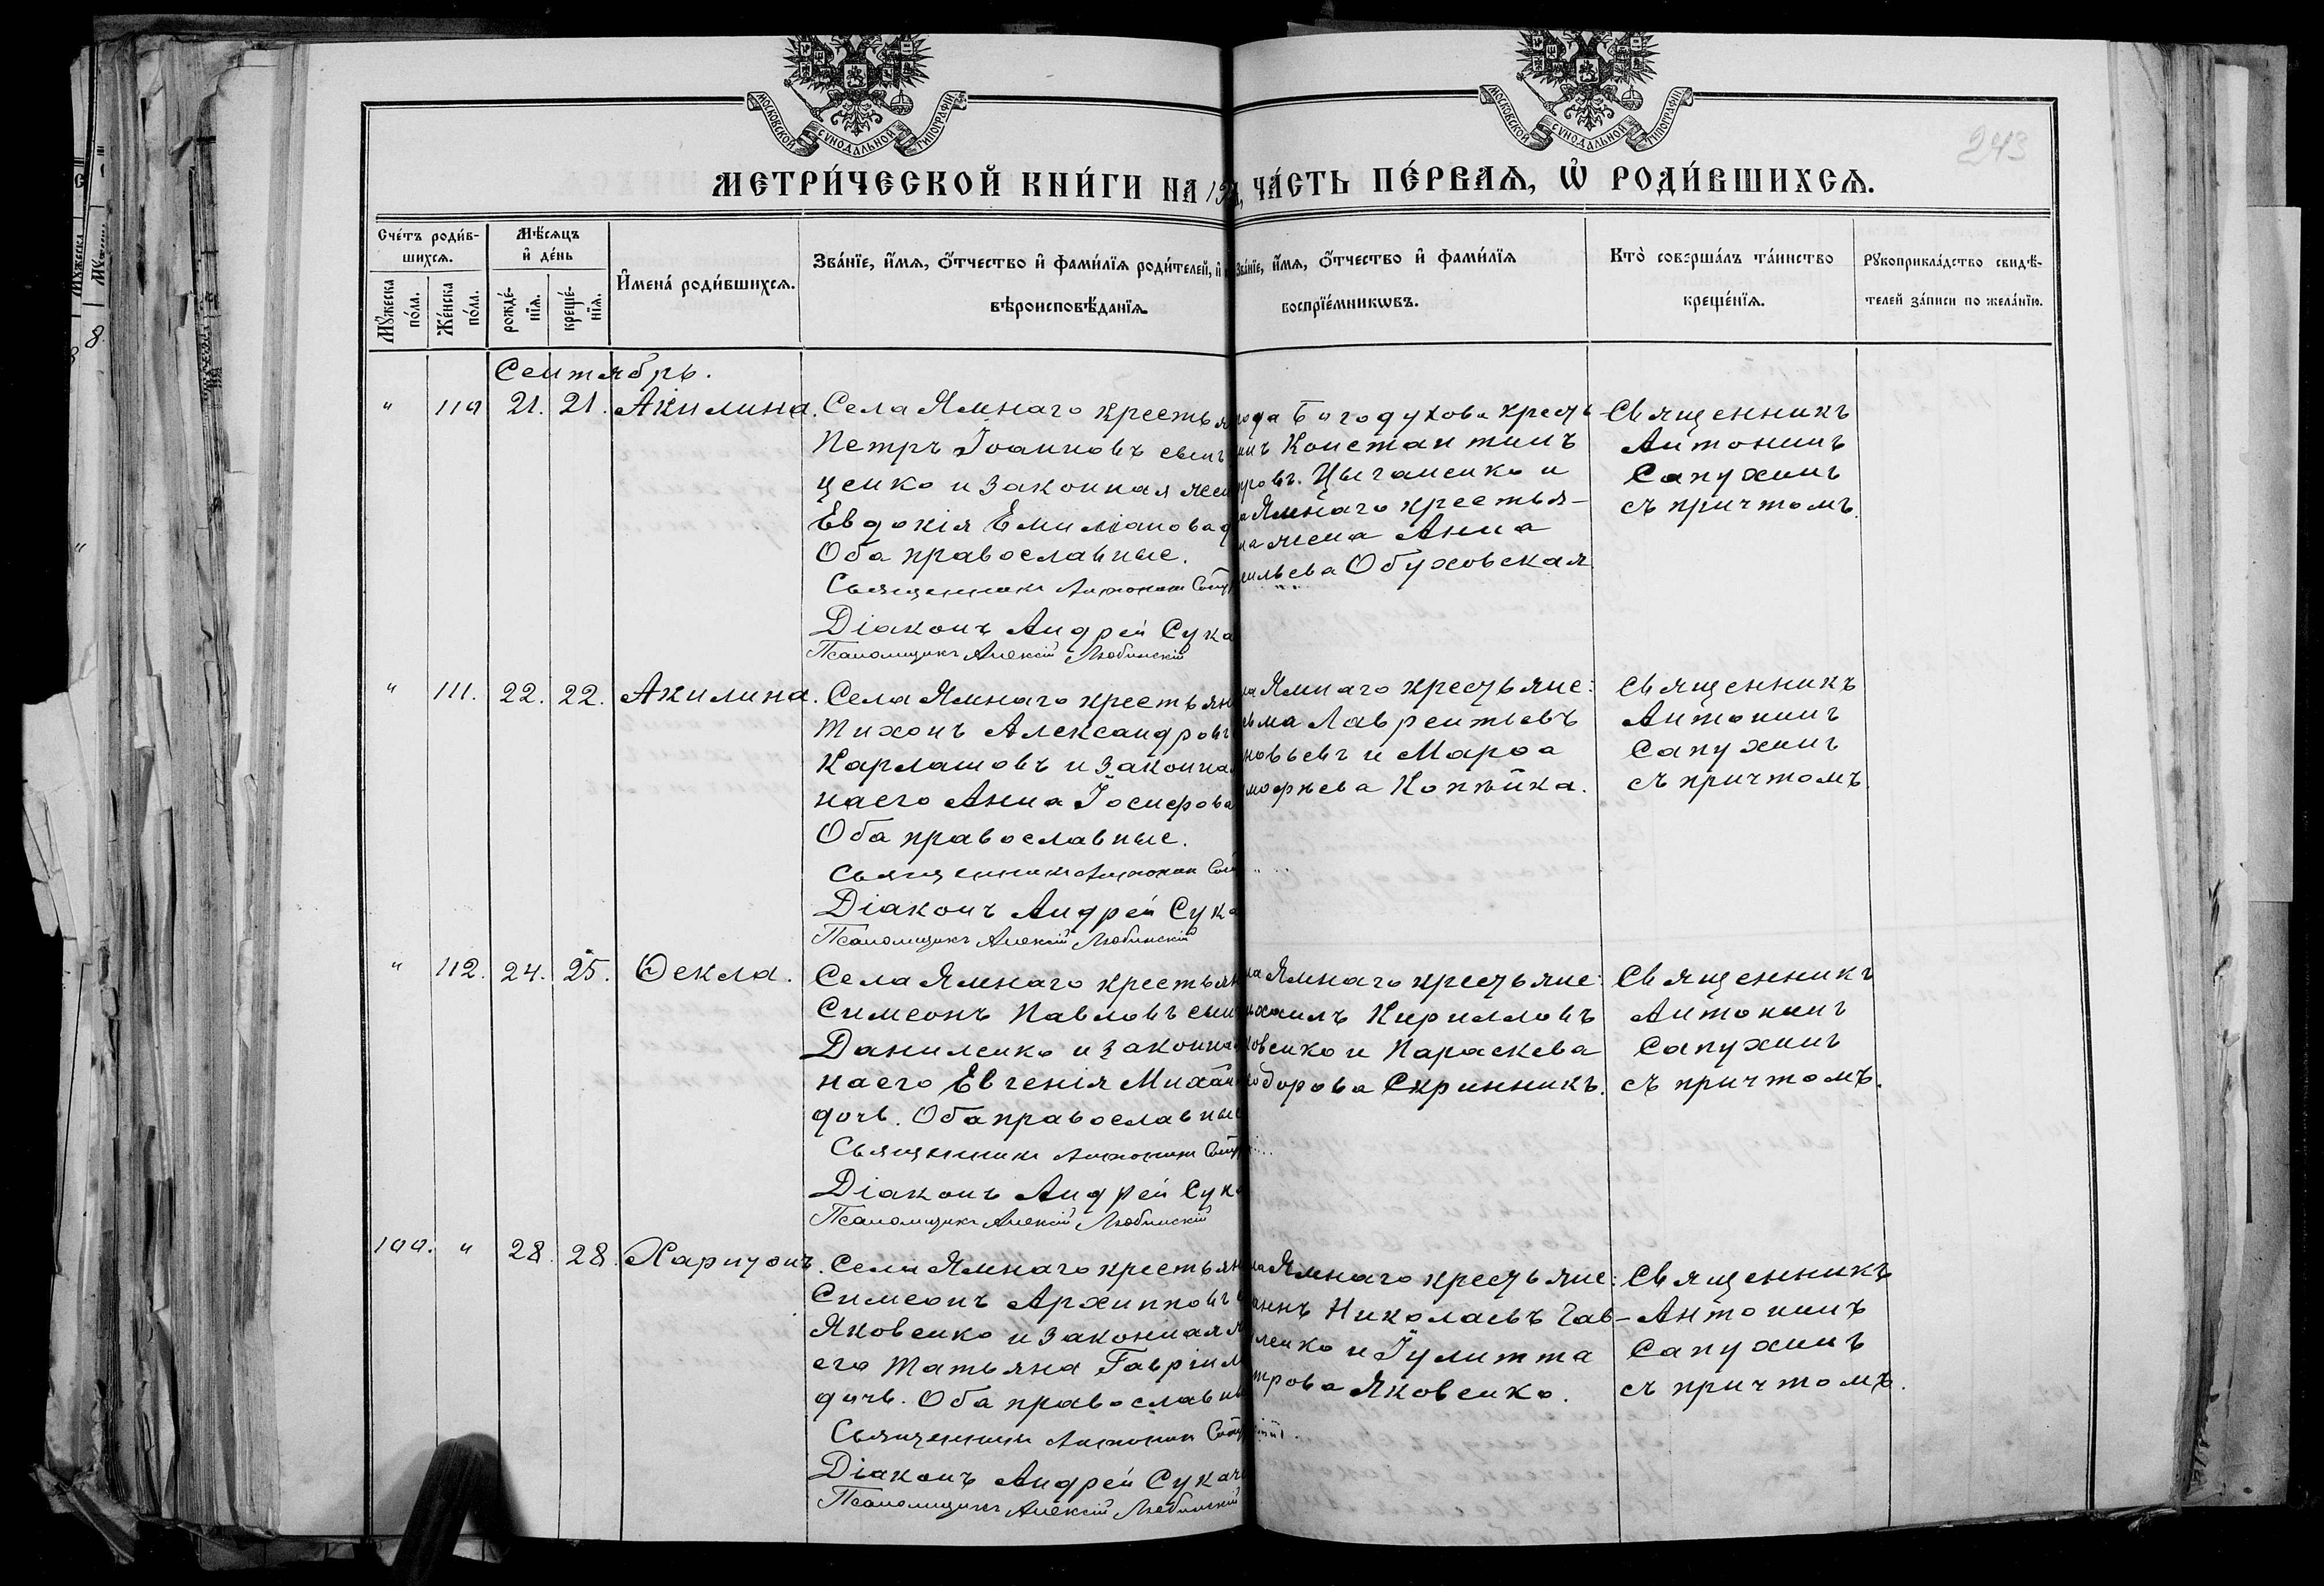 МОСКОВСКОЙ СѴНОДАЛЬНОЙ ТИПОГРАФІИ
МОСКОВСКОЙ СѴНОДАЛЬНОЙ ТИПОГРАФІИ
243
МЕТРИ́ЧЕСКОЙ КНИ́ГИ НА 19 ЧА́СТЬ ПЕ́РВАѦ, Ѡ҆ РОДИ́ВШИХСѦ.
Сче́тъ роди́в-
шихсѧ.
Мꙋ́жеска по́ла.
Же́нска по́ла.
Мѣ́сѧцъ
и҆ де́нь
рожде́-
нїѧ.
креще́-
нїѧ.
И҆мена̀ роди́вшихсѧ.
Зва́нїе, и҆́мѧ, ѻ҆́тчество и҆ фами́лїѧ роди́телей, и҆
вѣроисповѣ́данїѧ.
Зва́нїе, и҆́мѧ, ѻ҆́тчество и҆ фами́лїѧ
воспрїе́мникѡвъ.
Кто̀ соверша́лъ та́инство
креще́нїѧ.
Рꙋкоприкла́дство свидѣ́-
телей за́писи по жела́нїю.
Сентябрь.
" 110 21. 21. Акилина.
Села Ямнаго крестья
Петръ Іоанновъ сынъ
ценко и законная жен
Евдокія Емиліанова д
Оба православные.
Священникъ Антонин Сап
Діаконъ Андрей Сука
Псаломщикъ Алексій Любинскій
рода Богодухова кресть-
инъ Константинъ
ровъ. Цыганенко и
а Ямнаго крестья-
на жена Анна
сильева Обуховская
Священникъ
Антонинъ
Сапухинъ
съ причтомъ.
" 111. 22. 22. Акилина.
Села Ямнаго крестьян
Тихонъ Александровъ
Карлашовъ и законна
на его Анна Іосифова
Оба православные.
Священникъ Антонин Сап
Діаконъ Андрей Сука
Псаломщикъ Алексій Любинскій
ла Ямнаго крестьяне:
ьма Лаврентьевъ
новьевъ и Марѳа
моѳеева Копѣйка.
Священникъ
Антонинъ
Сапухинъ
съ причтомъ.
" 112. 24. 25. Ѳекла.
Села Ямнаго крестьян
Симеонъ Павловъ сын
Даниленко и законна
на его Евгенія Михаи
дочь. Оба православны
Священникъ Антонин Сап
Діаконъ Андрей Сук
Псаломщикъ Алексій Любинскій
ла Ямнаго крестьяне:
ихаилъ Кирилловъ
ковенко и Параскева
одорова Скринникъ.
Священникъ
Антонинъ
Сапухинъ
съ причтомъ.
100. " 28. 28. Харитонъ.
Села Ямнаго крестьян
Симеонъ Архипповъ
Яковенко и законная
его Татьяна Гавріил
дочь. Оба православны
Священникъ Антонин Сап
Діаконъ Андрей Сукач
Псаломщикъ Алексій Любинскій
ла Ямнаго крестьяне:
аннъ Николаевъ Гав-
ленко и Іулитта
трова Яковенко.
Священникъ
Антонинъ
Сапухинъ
съ причтомъ.